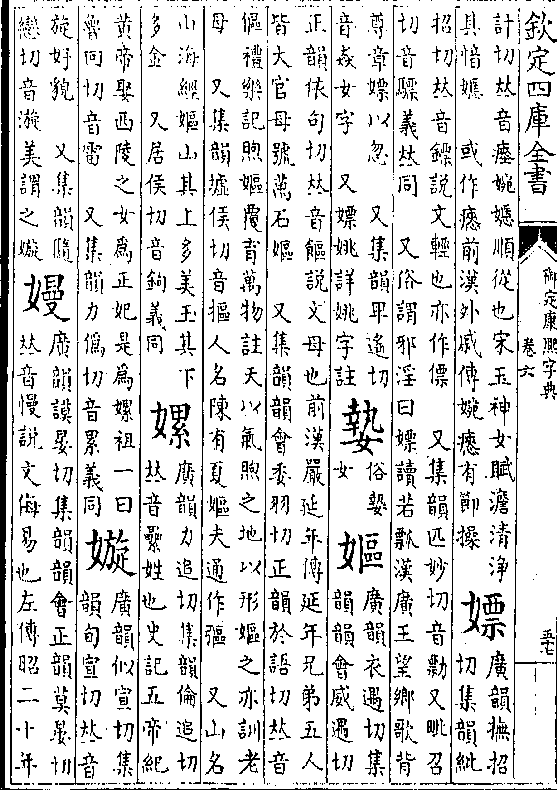 欽定四庫全書
御定康熙字典
卷六
五七
計切𠀤音瘞婉嫕順從也宋玉神女賦澹清淨
其愔嫕 或作瘱前漢外戚傳婉瘱有節操
嫖
廣韻撫招
切集韻紕
招切𠀤音鏢說文輕也亦作僄 又集韻匹妙切音勡又眦召
切音驃義𠀤同 又俗謂邪淫曰嫖讀若瓢漢廣王望鄉歌背
尊章嫖以忽 又集韻平遙切
音 女字 又嫖姚詳姚字註
㜘
俗
女
嫗
廣韻衣遇切集
韻韻會威遇切
正韻依句切𠀤音饇說文母也前漢嚴延年傳延年兄弟五人
皆大官母號萬石嫗 又集韻韻會委羽切正韻於語切𠀤音
傴禮樂記煦嫗覆育萬物註天以氣煦之地以形嫗之亦訓老
母 又集韻墟侯切音摳人名陳有夏嫗夫通作彄 又山名
山海經嫗山其上多美玉其下
多金 又居侯切音鉤義同
嫘
廣韻力追切集韻倫追切
𠀤音纍姓也史記五帝紀
黃帝娶西陵之女爲正妃是爲嫘祖一曰
魯回切音雷 又集韻力僞切音累義同
嫙
廣韻似宣切集
韻旬宣切𠀤音
旋好貌 又集韻隨
戀切音漩美謂之嫙
嫚
廣韻謨晏切集韻韻會正韻莫晏切
𠀤音慢說文侮易也左傳昭二十年